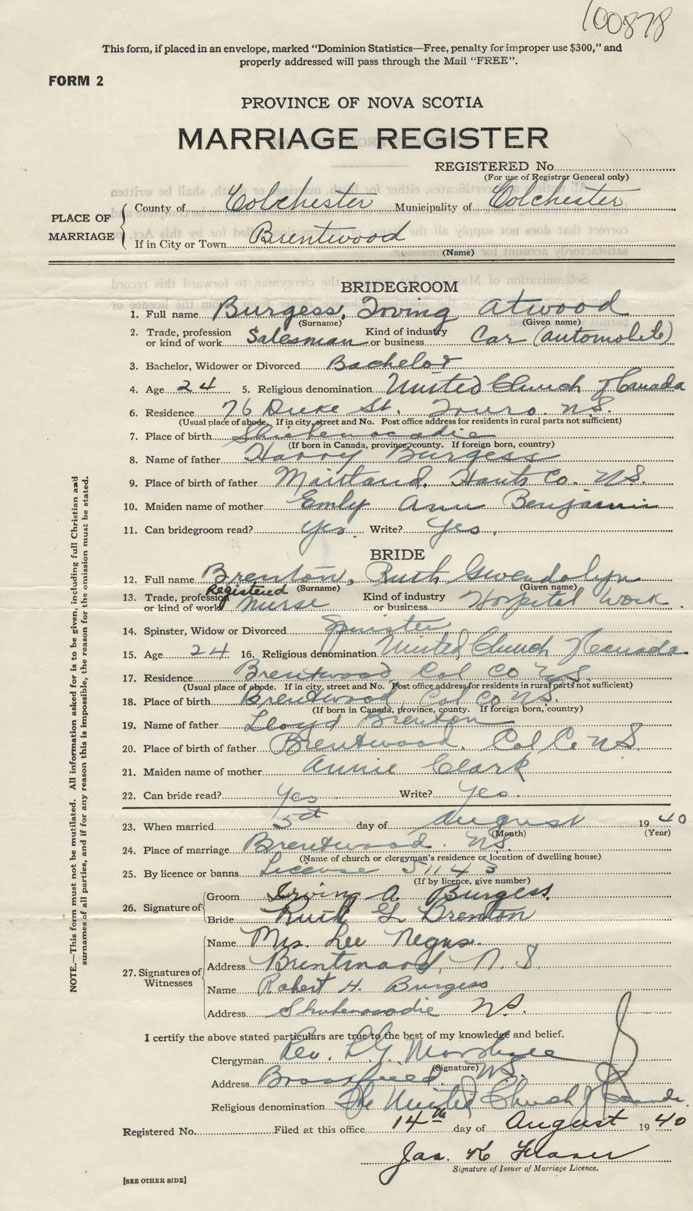 100878
This form, if placed in an envelope, marked "Dominion Statistics—Free, penalty for improper use $300," and
properly addressed will pass through the Mail "FREE".
FORM 2
PROVINCE OF NOVA SCOTIA
MARRIAGE REGISTER
REGISTERED No.
(For use of Registrar General only)
PLACE OF MARRIAGE
County of Colchester Municipality of Colchester
If in City or Town Brentwood
(Name)
BRIDEGROOM
1. Full name Burgess, Irving Atwood
(Surname) (Given name)
2. Trade, profession or kind of work Salesman Kind of industry or business Car (automobile)
3. Bachelor, Widower or Divorced Bachelor
4. Age 24 5. Religious denomination United Church of Canada
6. Residence 76 Duke St. Truro. N.S.
(Usual place of abode. If in city, street and No. Post office address for residents in rural parts not sufficient)
7. Place of birth Shubenacadie
(If born in Canada, province, county. If foreign born, country)
8. Name of father Harry Burgess
9. Place of birth of father Maitland, Hants Co. NS
10. Maiden name of mother Emly Ann Benjamin
11. Can bridegroom read? yes. Write? Yes.
BRIDE
12. Full name Brenton, Ruth Gwendolyn
(Surname) (Given name)
13. Trade, profession or kind of work Registered Nurse Kind of industry or business Hospital Work.
14. Spinster, Widow or Divorced Spinster
15. Age 24 16. Religious denomination United Church of Canada
17. Residence Brentwood Col Co NS
(Usual place of abode. If in city, street and No. Post office address for residents in rural parts not sufficient)
18. Place of birth Brentwood Col Co NS.
(If born in Canada, province, county. If foreign born, country)
19. Name of father Lloyd Brenton
20. Place of birth of father Brentwood. Col Co NS
21. Maiden name of mother Annie Clark
22. Can bride read? Yes Write? Yes.
23. When married 5th day of August 1940
(Month) (Year)
24. Place of marriage Brentwood. NS.
(Name of church or clergyman's residence or location of dwelling house)
25. By licence or banns License 51143
(If by licence, give number)
26. Signature of
Groom Irving A. Burgess.
Bride Ruth G. Brenton
27. Signatures of Witnesses
Name Mrs. Lee Negus.
Address Brentwood, N.S.
Name Robert H. Burgess
Address Shubenacadie NS.
I certify the above stated particulars are true to the best of my knowledge and belief.
Clergyman Rev. L G
(Signature)
Address Brookfield NS.
Religious denomination The United Church of Canada.
Registered No. Filed at this office 14th day of August 1940
Jas. K Fraser
Signature of Issuer of Marriage Licence.
[SEE OTHER SIDE]
NOTE.—This form must not be mutilated. All information asked for is to be given, including full Christian and
surnames of all parties, and if for any reason this is impossible, the reason for the omission must be stated.